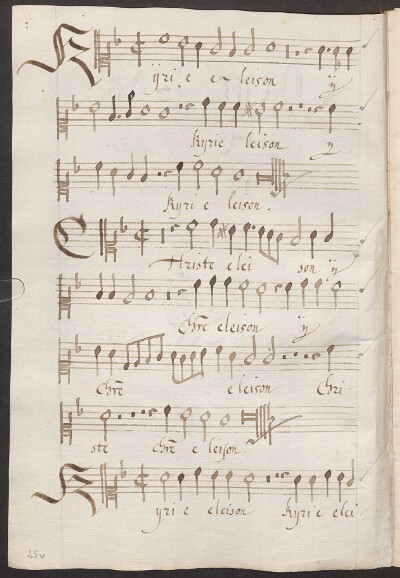 Kyrie e- leison ij
Kyrie leison ij
Kyri e leison.
Christe elei son ij
Chrē eleison ij
Chrē eleison Chri
ste Chrē e leison
Kyri e eleison Kyrie elei
25v